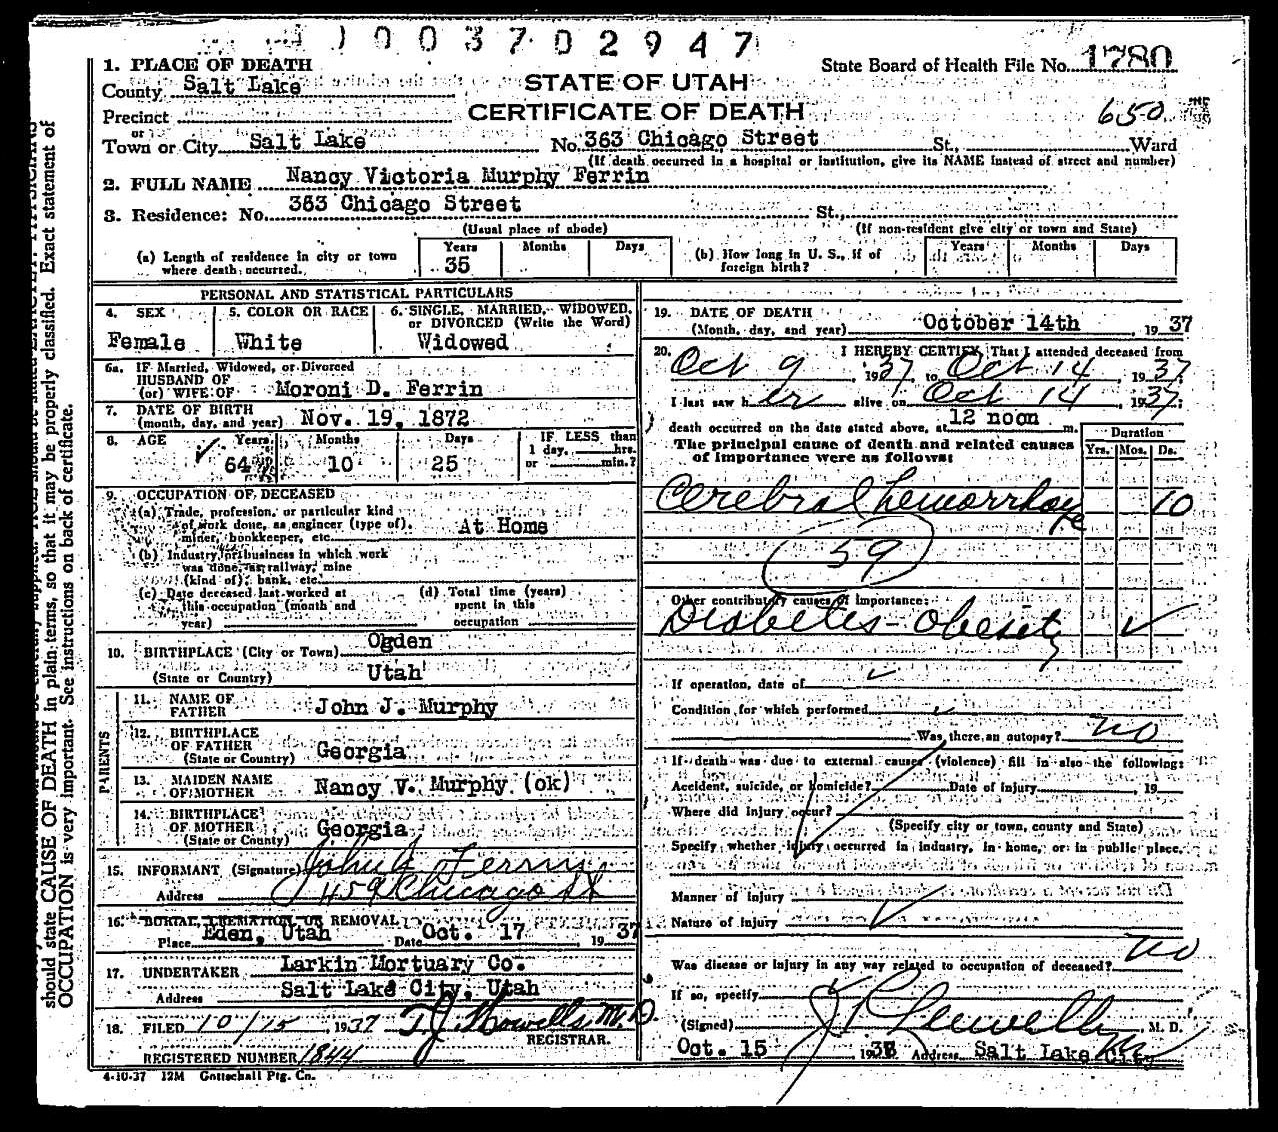 1003702947
1. PLACE OF DEATH
State Board of Health File No. 1780
County Salt Lake
STATE OF UTAH
CERTIFICATE OF DEATH
650
Precinct
or
Town or City Salt Lake No. 363 Chicago Street St., Ward
(If death occurred in a hospital or institution, give its NAME instead of street and number)
2. FULL NAME Nancy Victoria Murphy Ferrin
3. Residence: No. 363 Chicago Street St.,
(Usual place of abode) (If non-resident give city or town and State)
(a) Length of residence in city or town where death occurred. Years 35 Months Days
(b) How long in U. S., if of foreign birth? Years Months Days
PERSONAL AND STATISTICAL PARTICULARS
4. SEX Female
5. COLOR OR RACE White
6. SINGLE, MARRIED, WIDOWED, or DIVORCED (Write the Word) Widowed
6a. IF Married, Widowed, or Divorced
HUSBAND OF
(or) WIFE OF Moroni D. Ferrin
7. DATE OF BIRTH
(month, day, and year) Nov. 19, 1872
8. AGE Years 64 Months 10 Days 25 IF LESS than 1 day, hrs. or min.?
9. OCCUPATION OF DECEASED
(a) Trade, profession, or particular kind
of work done, as engineer (type of). At Home
miner, bookkeeper, etc.
(b) Industry or business in which work
was done, as railway, mine
(kind of), bank, etc.
(c) Date deceased last worked at
this occupation (month and
year)
(d) Total time (years)
spent in this
occupation
10. BIRTHPLACE (City or Town) Ogden
(State or Country) Utah
PARENTS
11. NAME OF FATHER John J. Murphy
12. BIRTHPLACE OF FATHER (State or Country) Georgia
13. MAIDEN NAME OF MOTHER Nancy V. Murphy (ok)
14. BIRTHPLACE OF MOTHER (State or Country) Georgia
15. INFORMANT (Signature) John Ferrin
Address 459 Chicago St
16. BURIAL, CREMATION, OR REMOVAL
Place Eden, Utah Date Oct. 17, 1937
17. UNDERTAKER Larkin Mortuary Co.
Address Salt Lake City, Utah
18. FILED 10/15, 1937 T. J. Howells M. D.
REGISTRAR.
REGISTERED NUMBER 1844
4-10-37 12M Gottschall Ptg. Co.
19. DATE OF DEATH
(Month, day, and year) October 14th, 1937
20. I HEREBY CERTIFY, That I attended deceased from
Oct 9, 1937 to Oct 14, 1937
I last saw her alive on Oct 14, 1937;
death occurred on the date stated above, at 12 noon m.
The principal cause of death and related causes
of importance were as follows:
Duration
Yrs. Mos. Ds.
Cerebral hemorrhage 10
59
Other contributory causes of importance:
Diabetes - Obesity
If operation, date of
Condition for which performed
Was there an autopsy? no
If death was due to external causes (violence) fill in also the following:
Accident, suicide, or homicide? Date of injury, 19
Where did injury occur?
(Specify city or town, county and State)
Specify whether injury occurred in industry, in home, or in public place.
Manner of injury
Nature of injury
Was disease or injury in any way related to occupation of deceased? no
If so, specify
(Signed) Llewellyn, M. D.
Oct. 15 1937 Address Salt Lake City
should state CAUSE OF DEATH in plain terms, so that it may be properly classified. Exact statement of
OCCUPATION is very important. See instructions on back of certificate.